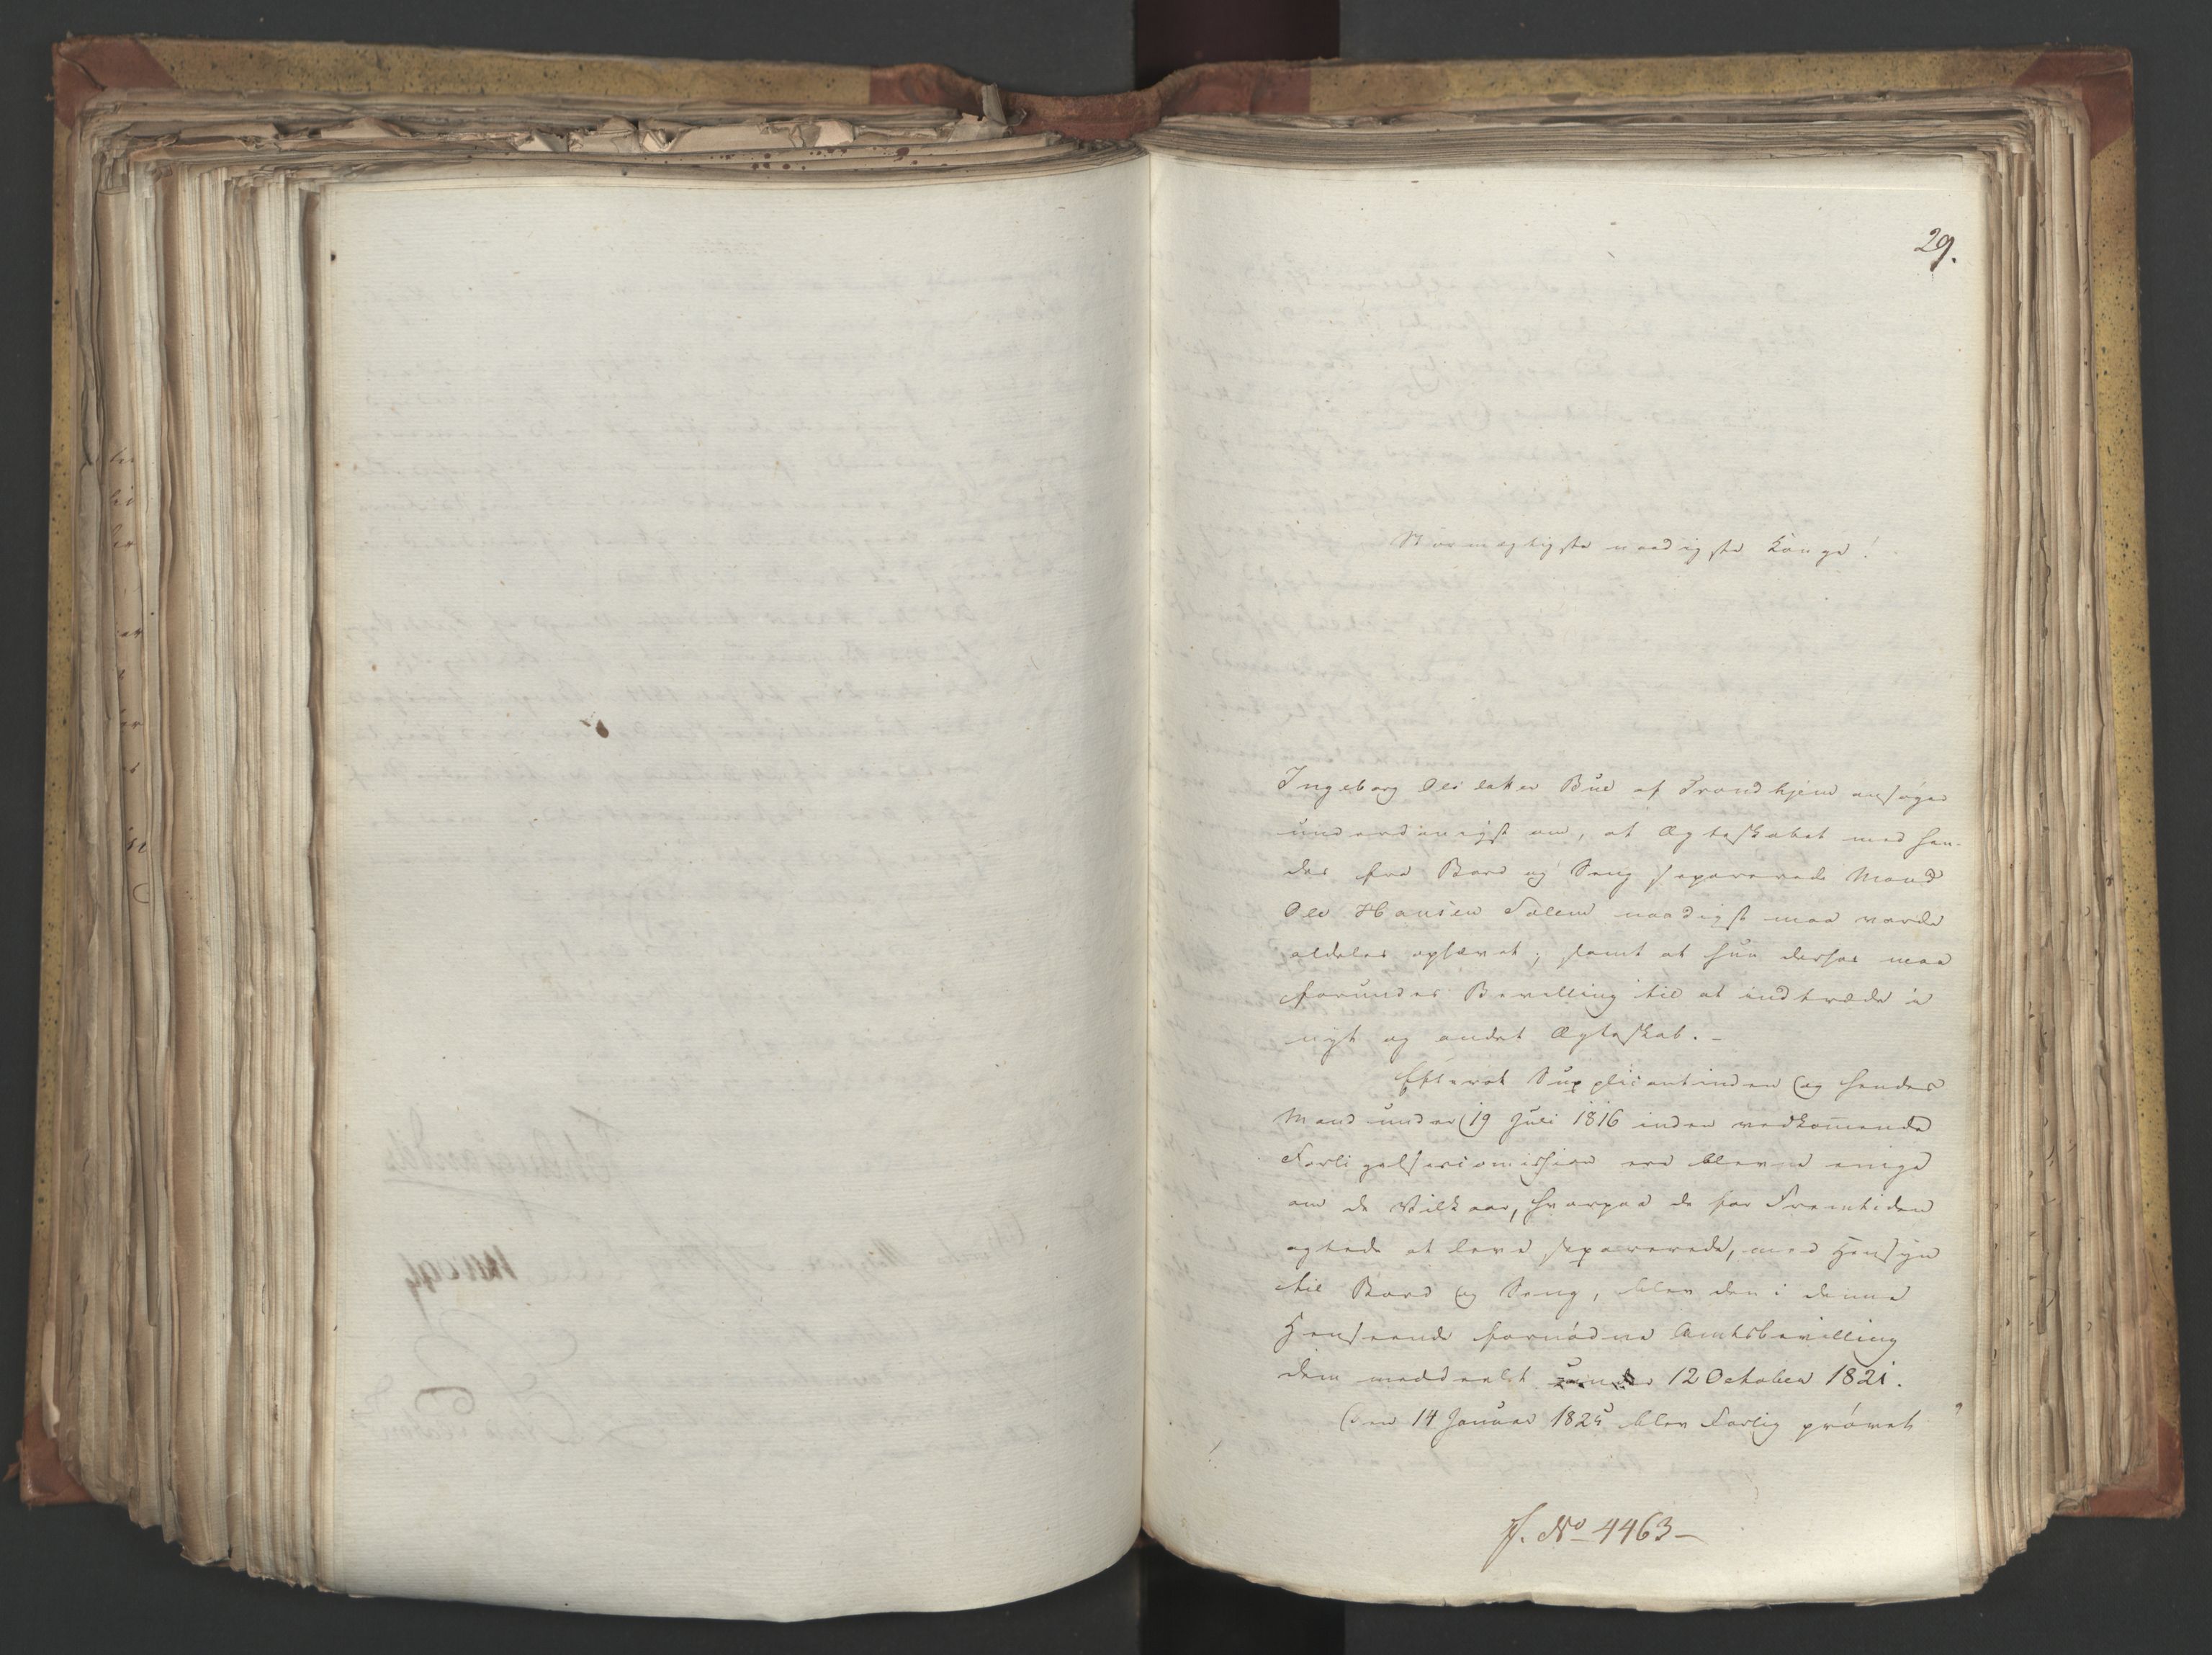 29.
Stormægtigste naadigste Konge!
Ingeborg Olsdatter Bue af Trondhjem ansøger
underdanigst om, at Ægteskabet med hen-
des fra Bord og Seng separerede Mand
Ole Hansen Solem naadigst maa vorde
aldeles ophævet, samt at hun derhos maa
forundes Bevilling til at indtræde i
nyt og andet Ægteskab. -
Efterat Supplicantinden og hendes
Mand under 19 Juli 1816 inden vedkommende
Forligelsescomission ere blevne enige
om de Vilkaar, hvorpaa de for Fremtiden
agtede at leve separerede, med Hensyn
til Bord og Seng, blev den i denne
Henseende fornødne Amtsbevilling
dem meddeelt under 12 October 1821.
Den 14 Januar 1825 blev Forlig prøvet
J. No 4463 -